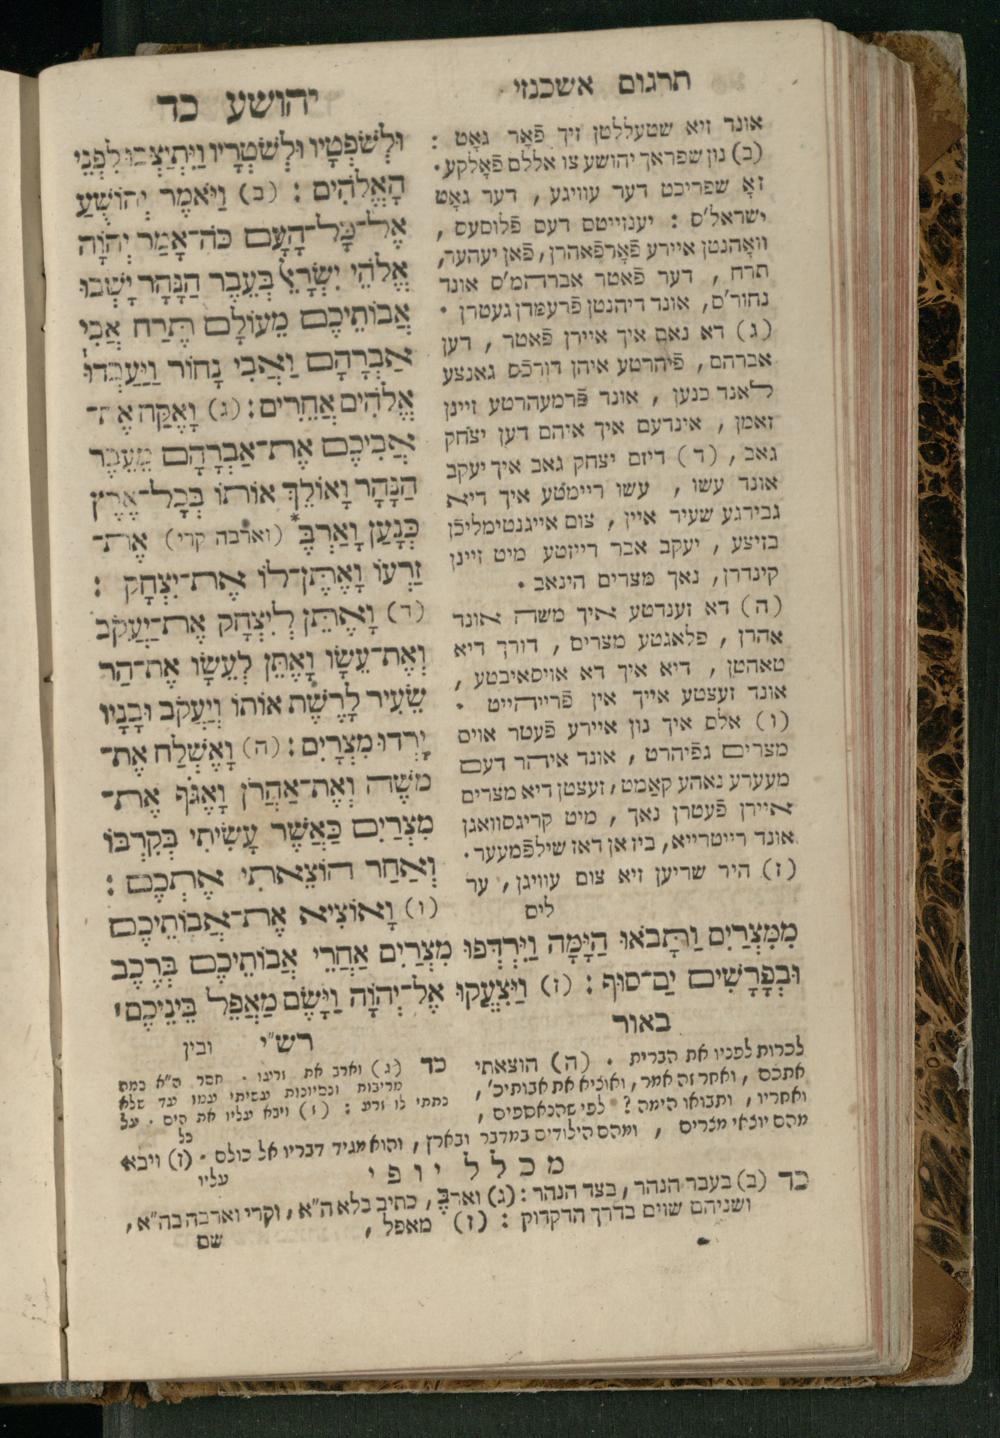 תרגום אשכנזי
אונד זיא שטעללטן זיך פֿאַר גאָט :
(ב) נון שפראך יהושע צו אללם פֿאָלקע.
זאָ שפריכט דער עוויגע , דער גאָט
ישראל'ס : יענזייטס דעם פֿלוסעס ,
וואָהנטן איירע פֿאָרפֿאהרן, פֿאן יעהער,
תרח , דער פֿאטר אברהם'ס אונד
נחור'ס, אונד דיהנטן פֿרעמדן געטרן .
(ג) דא נאם איך איירן פֿאטר , דען
אברהם, פֿיהרטע איהן דורכֿס גאנצע
לאנד כנען , אונד פֿרמעהרטע זיינן
זאמן , אינדעם איך איהם דען יצחק
גאב , (ד) דיזם יצחק גאב איך יעקב
אונד עשו , עשו ריימטע איך דיא
גבירגע שעיר איין , צום אייגנטימליכֿן
בזיצע , יעקב אבר רייזטע מיט זיינן
קינדרן, נאך מצרים הינאב .
(ה) דא זענדטע איך משה אונד
אהרן , פלאגטע מצרים , דורך דיא
טאהטן , דיא איך דא אויסאיבטע ,
אונד זעצטע אייך אין פֿרייהייט .
(ו) אלס איך נון איירע פֿעטר אויס
מצרים גפֿיהרט , אונד איהר דעם
מעערע נאהע קאַמט, זעצטן דיא מצרים
איירן פֿעטרן נאך , מיט קריגסוואגן
אונד רייטרייא, ביז אן דאז שילפֿמעער.
(ז) היר שריען זיא צום עוויגן, ער
לים
יהושע כד
וּלְשֹׁפְטָיו וּלְשֹׁטְרָיו וַיִּתְיַצְּבוּ לִפְנֵי
הָאֱלֹהִים : (ב) וַיֹּאמֶר יְהוֹשֻׁעַ
אֶל־כָּל־הָעָם כֹּה־אָמַר יְהוָֹה
אֱלֹהֵי יִשְׂרָאֵל בְּעֵבֶר הַנָּהָר יָשְׁבוּ
אֲבוֹתֵיכֶם מֵעוֹלָם תֶּרַח אֲבִי
אַבְרָהָם וַאֲבִי נָחוֹר וַיַּעַבְדוּ
אֱלֹהִים אֲחֵרִים : (ג) וָאֶקַּח אֶת־
אֲבִיכֶם אֶת־אַבְרָהָם מֵעֵבֶר
הַנָּהָר וָאוֹלֵךְ אוֹתוֹ בְּכָל־אֶרֶץ
כְּנָעַן וָאַרְבֶּ* (וארבה קרי) אֶת־
זַרְעוֹ וָאֶתֶּן־לוֹ אֶת־יִצְחָק :
(ד) וָאֶתֵּן לְיִצְחָק אֶת־יַעֲקֹב
וְאֶת־עֵשָׂו וָאֶתֵּן לְעֵשָׂו אֶת־הַר
שֵׂעִיר לָרֶשֶׁת אוֹתוֹ וְיַעֲקֹב וּבָנָיו
יָרְדוּ מִצְרָיִם : (ה) וָאֶשְׁלַח אֶת־
מֹשֶׁה וְאֶת־אַהֲרֹן וָאֶגֹּף אֶת־
מִצְרַיִם כַּאֲשֶׁר עָשִׂיתִי בְּקִרְבּוֹ
וְאַחַר הוֹצֵאתִי אֶתְכֶם :
(ו) וָאוֹצִיא אֶת־אֲבוֹתֵיכֶם
מִמִּצְרַיִם וַתָּבֹאוּ הַיָּמָּה וַיִּרְדְּפוּ מִצְרַיִם אַחֲרֵי אֲבוֹתֵיכֶם בְּרֶכֶב
וּבְפָרָשִׁים יַם־סוּף : (ז) וַיִּצְעֲקוּ אֶל־יְהוָֹה וַיָּשֶׂם מַאֲפֵל בֵּינֵיכֶם'
ובין
באור
לכרות לפניו את הברית . (ה) הוצאתי
אתכם , ואחר זה אמר, ואוציא את אבותיכ',
ואחריו , ותבואו הימה ? לפי שהנאספים ,
מהם יוצאי מצרים , ומהם הילודים במדבר ובארץ , והוא מגיד דבריו אל כולם . (ז) ויבא
עליו
רש"י
כד (ג) וארב את זרעו . חסר ה"א כמה
מריבות ונסיונות עשיתי עמו עד שלא
נתתי לו זרע : (ז) ויבא עליו את הים . על
כל
מכלל יופי
כד (ב) בעבר הנהר , בצד הנהר : (ג) וארבֶּ, כתיב בלא ה"א , וקרי וארבה בה"א ,
ושניהם שוים בדרך הדקדוק : (ז) מאפל ,
שם